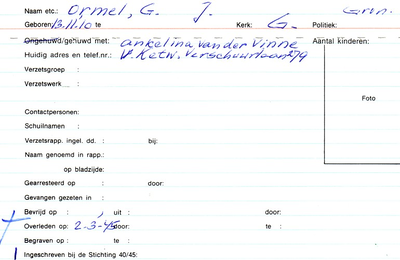 Naam etc.: Ormel, G. J. Gron.
Geboren: 13.11.10 te Kerk: G. Politiek:
Ongehuwd/gehuwd met: Ankelina van der Vinne Aantal kinderen:
Huidig adres en telef.nr.: v. Ketw. Verschuurlaan 79
Verzetsgroep :
Verzetswerk :
Foto
Contactpersonen:
Schuilnamen :
Verzetsrapp. ingel. dd. : bij:
Naam genoemd in rapp.:
op bladzijde:
Gearresteerd op : door:
Gevangen gezeten in :
Bevrijd op : , uit : door:
Overleden op : 2-3-45 door: te :
Begraven op : te :
Ingeschreven bij de Stichting 40/45: